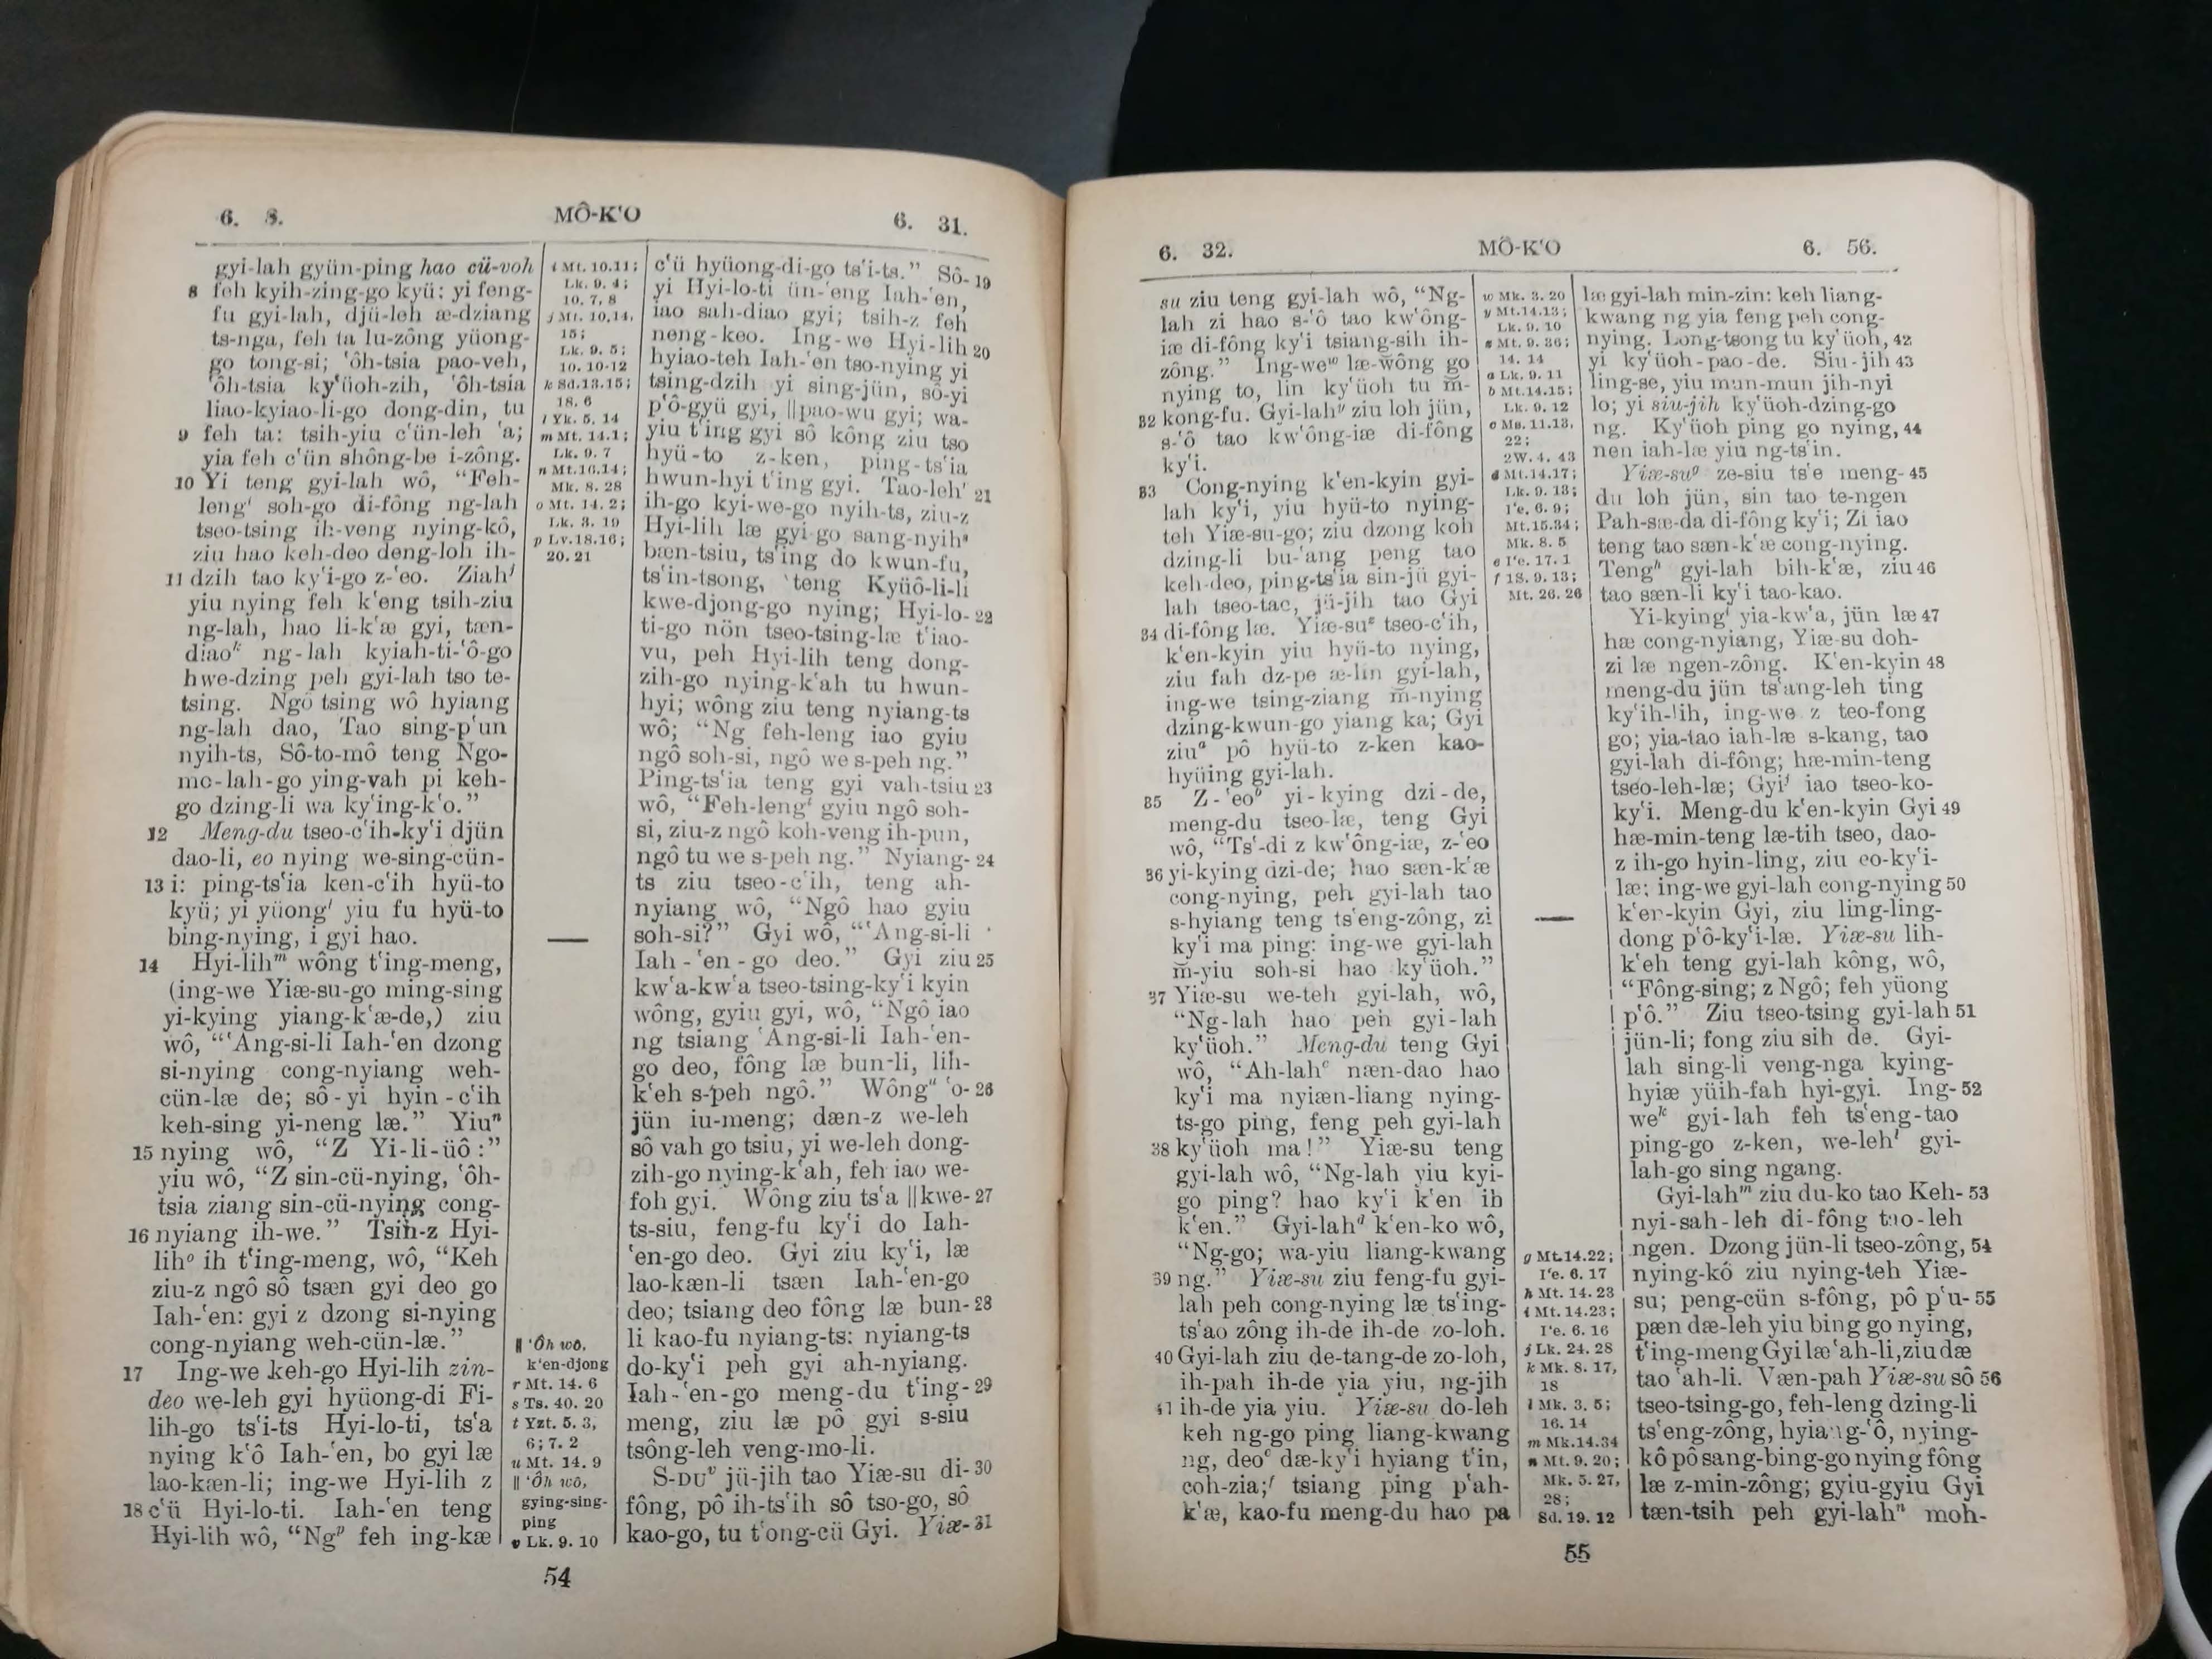 6. 8. MÔ-K'O 6. 31.
gyi-lah gyüin-ping hao cü-voh
8 feh kyih-zing-go kyü: yi feng-
fu gyi-lah, djü-leh æ-dziang
ts-nga, feh ta lu-zông yüong-
go tong-si; 'ôh-tsia pao-veh,
'ôh-tsia ky'üoh-zih, 'ôh-tsia
liao-kyiao-li-go dong-din, tu
9 feh ta: tsih-yiu c'ün-leh 'a;
yia feh c'ün shông-be i-zông.
10 Yi teng gyi-lah wô, “Feh-
lengⁱ soh-go di-fông ng-lah
tseo-tsing ih-veng nying-kô,
ziu hao keh-deo deng-loh ih-
11 dzih tao ky'i-go z-'eo. Ziahʲ
yiu nying feh k'eng tsih-ziu
ng-lah, hao li-k'æ gyi, tæn-
diaoᵏ ng-lah kyiah-ti-'ô-go
hwe-dzing peh gyi-lah tso te-
tsing. Ngô tsing wô hyiang
ng-lah dao, Tao sing-p'un
nyih-ts, Sô-to-mô teng Ngo-
mo-lah-go ying-vah pi keh-
go dzing-li wa ky'ing-k'o.”
12 Meng-du tseo-c'ih-ky'i djün
dao-li, eo nying we-sing-cün-
13 i: ping-ts'ia ken-c'ih hyü-to
kyü; yi yüongˡ yiu fu hyü-to
bing-nying, i gyi hao.
14 Hyi-lihᵐ wông t'ing-meng,
(ing-we Yiæ-su-go ming-sing
yi-kying yiang-k'æ-de,) ziu
wô, “'Ang-si-li Iah-'en dzong
si-nying cong-nyiang weh-
cün-læ de; sô-yi hyin-c'ih
keh-sing yi-neng læ.” Yiuⁿ
15 nying wô, “Z Yi-li-üô:”
yiu wô, “Z sin-cü-nying, 'ôh-
tsia ziang sin-cü-nying cong-
16 nyiang ih-we.” Tsih-z Hyi-
lihᵒ ih t'ing-meng, wô, “Keh
ziu-z ngô sô tsæn gyi deo go
Iah-'en: gyi z dzong si-nying
cong-nyiang weh-cün-læ.”
17 Ing-we keh-go Hyi-lih zin-
deo we-leh gyi hyüong-di Fi-
lih-go ts'i-ts Hyi-lo-ti, ts'a
nying k'ô Iah-'en, bo gyi læ
lao-kæn-li; ing-we Hyi-lih z
18 c'ü Hyi-lo-ti. Iah-'en teng
Hyi-lih wô, “Ngᵖ feh ing-kæ
i Mt. 10.11;
Lk. 9. 4;
10. 7, 8
j Mt. 10.14,
15;
Lk. 9. 5;
10. 10-12
k Sd.13.15;
18. 6
l Yk. 5. 14
m Mt. 14.1;
Lk. 9. 7
n Mt.16.14;
Mk. 8. 28
o Mt. 14. 2;
Lk. 3. 19
p Lv.18.16;
20. 21
‖ 'Ôh wô,
k'en-djong
r Mt. 14. 6
s Ts. 40. 20
t Yzt. 5. 3,
6; 7. 2
u Mt. 14. 9
‖ 'Ôh wô,
gying-sing-
ping
v Lk. 9. 10
c'ü hyüong-di-go ts'i-ts.” Sô- 19
yi Hyi-lo-ti ün-'eng Iah-'en,
iao sah-diao gyi; tsih-z feh
neng-keo. Ing-we Hyi-lih 20
hyiao-teh Iah-'en tso-nying yi
tsing-dzih yi sing-jün, sô-yi
p'ô-gyü gyi, ‖pao-wu gyi; wa-
yiu t'ing gyi sô kông ziu tso
hyü-to z-ken, ping-ts'ia
hwun-hyi t'ing gyi. Tao-lehʳ 21
ih-go kyi-we-go nyih-ts, ziu-z
Hyi-lih læ gyi-go sang-nyihˢ
bæn-tsiu, ts'ing do kwun-fu,
ts'in-tsong, 'teng Kyüô-li-li
kwe-djong-go nying; Hyi-lo- 22
ti-go nön tseo-tsing-læ t'iao-
vu, peh Hyi-lih teng dong-
zih-go nying-k'ah tu hwun-
hyi; wông ziu teng nyiang-ts
wô; “Ng feh-leng iao gyiu
ngô soh-si, ngô we s-peh ng.”
Ping-ts'ia teng gyi vah-tsiu 23
wô, “Feh-lengᵗ gyiu ngô soh-
si, ziu-z ngô koh-veng ih-pun,
ngô tu we s-peh ng.” Nyiang- 24
ts ziu tseo-c'ih, teng ah-
nyiang wô, “Ngô hao gyiu
soh-si?” Gyi wô, “'Ang-si-li
Iah-'en-go deo.” Gyi ziu 25
kw'a-kw'a tseo-tsing-ky'i kyin
wông, gyiu gyi, wô, “Ngô iao
ng tsiang 'Ang-si-li Iah-'en-
go deo, fông læ bun-li, lih-
k'eh s-peh ngô.” Wôngᵘ 'o- 26
jün iu-meng; dæn-z we-leh
sô vah go tsiu, yi we-leh dong-
zih-go nying-k'ah, feh iao we-
foh gyi. Wông ziu ts'a ‖kwe- 27
ts-siu, feng-fu ky'i do Iah-
'en-go deo. Gyi ziu ky'i, læ
lao-kæn-li tsæn Iah-'en-go
deo; tsiang deo fông læ bun- 28
li kao-fu nyiang-ts: nyiang-ts
do-ky'i peh gyi ah-nyiang.
Iah-'en-go meng-du t'ing- 29
meng, ziu læ pô gyi s-siu
tsông-leh veng-mo-li.
S-DUᵛ jü-jih tao Yiæ-su di- 30
fông, pô ih-ts'ih sô tso-go, sô
kao-go, tu t'ong-cü Gyi. Yiæ- 31
54
6. 32. MÔ-K'O 6. 56.
su ziu teng gyi-lah wô, “Ng-
lah zi hao s-'ô tao kw'ông-
iæ di-fông ky'i tsiang-sih ih-
zông.” Ing-weʷ læ-wông go
nying to, lin ky'üoh tu m̄-
32 kong-fu. Gyi-lahʸ ziu loh jün,
s-'ô tao kw'ông-iæ di-fông
ky'i.
33 Cong-nying k'en-kyin gyi-
lah ky'i, yiu hyü-to nying-
teh Yiæ-su-go; ziu dzong koh
dzing-li bu-'ang peng tao
keh-deo, ping-ts'ia sin-jü gyi-
lah tseo-tao, jü-jih tao Gyi
34 di-fông læ. Yiæ-suᶻ tseo-c'ih,
k'en-kyin yiu hyü-to nying,
ziu fah dz-pe æ-lin gyi-lah,
ing-we tsing-ziang m̄-nying
dzing-kwun-go yiang ka; Gyi
ziuᵃ pô hyü-to z-ken kao-
hyüing gyi-lah.
35 Z-'eoᵇ yi-kying dzi-de,
meng-du tseo-læ, teng Gyi
wô, “Ts'-di z kw'ông-iæ, z-'eo
36 yi-kying dzi-de; hao sæn-k'æ
cong-nying, peh gyi-lah tao
s-hyiang teng ts'eng-zông, zi
ky'i ma ping: ing-we gyi-lah
m̄-yiu soh-si hao ky'üoh.”
37 Yiæ-su we-teh gyi-lah, wô,
“Ng-lah hao peh gyi-lah
ky'üoh.” Meng-du teng Gyi
wô, “Ah-lahᶜ næn-dao hao
ky'i ma nyiæn-liang nying-
ts-go ping, feng peh gyi-lah
38 ky'üoh ma!” Yiæ-su teng
gyi-lah wô, “Ng-lah yiu kyi-
go ping? hao ky'i k'en ih
k'en.” Gyi-lahᵈ k'en-ko wô,
“Ng-go; wa-yiu liang-kwang
39 ng.” Yiæ-su ziu feng-fu gyi-
lah peh cong-nying læ ts'ing-
ts'ao zông ih-de ih-de zo-loh.
40 Gyi-lah ziu de-tang-de zo-loh,
ih-pah ih-de yia yiu, ng-jih
41 ih-de yia yiu. Yiæ-su do-leh
keh ng-go ping liang-kwang
ng, deoᵉ dæ-ky'i hyiang t'in,
coh-zia;ᶠ tsiang ping p'ah-
k'æ, kao-fu meng-du hao pa
w Mk. 3. 20
y Mt.14.13;
Lk. 9. 10
z Mt. 9. 36;
14. 14
a Lk. 9. 11
b Mt.14.15;
Lk. 9. 12
c Ms. 11.13,
22;
2W. 4. 43
d Mt.14.17;
Lk. 9. 13;
I'e. 6. 9;
Mt.15.34;
Mk. 8. 5
e I'e. 17. 1
f 1S. 9. 13;
Mt. 26. 26
g Mt.14.22;
I'e. 6. 17
h Mt. 14. 23
i Mt. 14.23;
I'e. 6. 16
j Lk. 24. 28
k Mk. 8. 17,
18
l Mk. 3. 5;
16. 14
m Mk.14.34
n Mt. 9. 20;
Mk. 5. 27,
28;
Sd. 19. 12
læ gyi-lah min-zin: keh liang-
kwang ng yia feng peh cong-
nying. Long-tsong tu ky'üoh, 42
yi ky'üoh-pao-de. Siu-jih 43
ling-se, yiu mun-mun jih-nyi
lo; yi siu-jih ky'üoh-dzing-go
ng. Ky'üoh ping go nying, 44
nen iah-læ yiu ng-ts'in.
Yiæ-suᵍ ze-siu ts'e meng- 45
du loh jün, sin tao te-ngen
Pah-sæ-da di-fông ky'i; Zi iao
teng tao sæn-k'æ cong-nying.
Tengʰ gyi-lah bih-k'æ, ziu 46
tao sæn-li ky'i tao-kao.
Yi-kyingⁱ yia-kw'a, jün læ 47
hæ cong-nyiang, Yiæ-su doh-
zi læ ngen-zông. K'en-kyin 48
meng-du jün ts'ang-leh ting
ky'ih-lih, ing-we z teo-fong
go; yia-tao iah-læ s-kang, tao
gyi-lah di-fông; hæ-min-teng
tseo-leh-læ; Gyiʲ iao tseo-ko-
ky'i. Meng-du k'en-kyin Gyi 49
hæ-min-teng læ-tih tseo, dao-
z ih-go hyin-ling, ziu eo-ky'i-
læ: ing-we gyi-lah cong-nying 50
k'en-kyin Gyi, ziu ling-ling-
dong p'ô-ky'i-læ. Yiæ-su lih-
k'eh teng gyi-lah kông, wô,
“Fông-sing; z Ngô; feh yüong
p'ô.” Ziu tseo-tsing gyi-lah 51
jün-li; fong ziu sih de. Gyi-
lah sing-li veng-nga kying-
hyiæ yüih-fah hyi-gyi. Ing- 52
weᵏ gyi-lah feh ts'eng-tao
ping-go z-ken, we-lehˡ gyi-
lah-go sing ngang.
Gyi-lahᵐ ziu du-ko tao Keh- 53
nyi-sah-leh di-fông tao-leh
ngen. Dzong jün-li tseo-zông, 54
nying-kô ziu nying-teh Yiæ-
su; peng-cün s-fông, pô p'u- 55
pæn dæ-leh yiu bing go nying,
t'ing-meng Gyi læ 'ah-li, ziu dæ
tao 'ah-li. Væn-pah Yiæ-su sô 56
tseo-tsing-go, feh-leng dzing-li
ts'eng-zông, hyiang-'ô, nying-
kô pô sang-bing-go nying fông
læ z-min-zông; gyiu-gyiu Gyi
tæn-tsih peh gyi-lahⁿ moh-
55